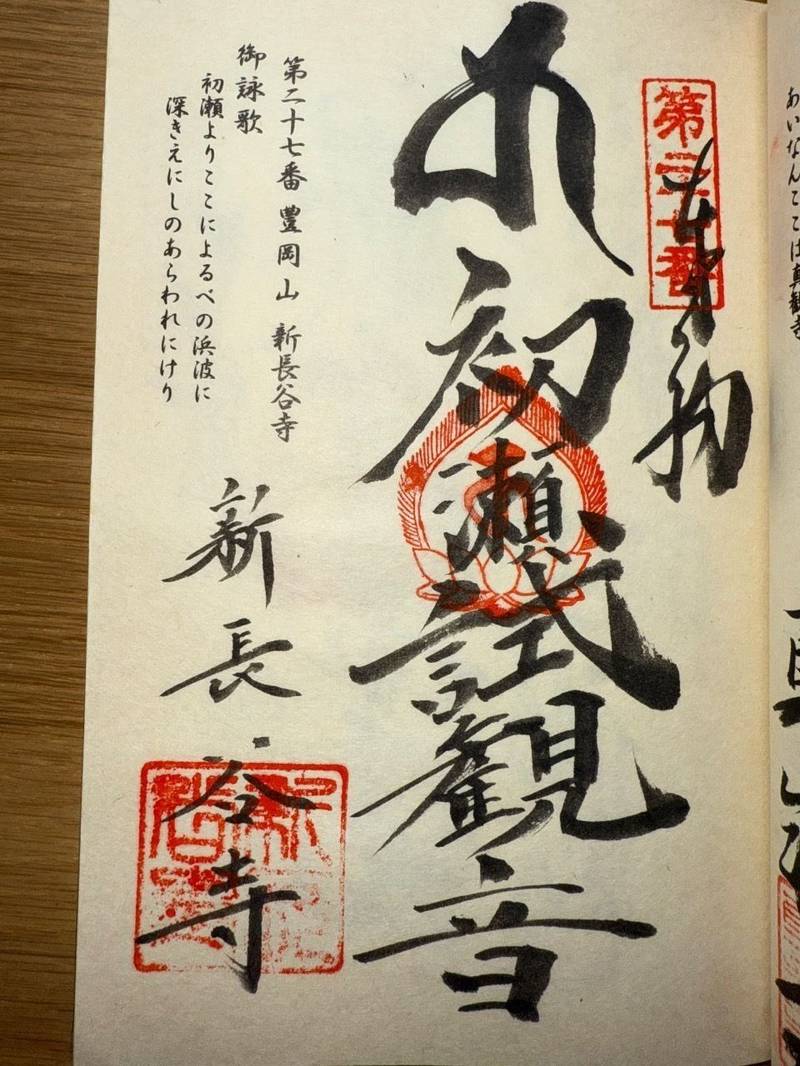 あいなんここは真観寺
第二十七番
奉納
初瀬試観音
第二十七番 豊岡山 新長谷寺
御詠歌
初瀬よりここによるべの浜波に
深きえにしのあらわれにけり
新長谷寺